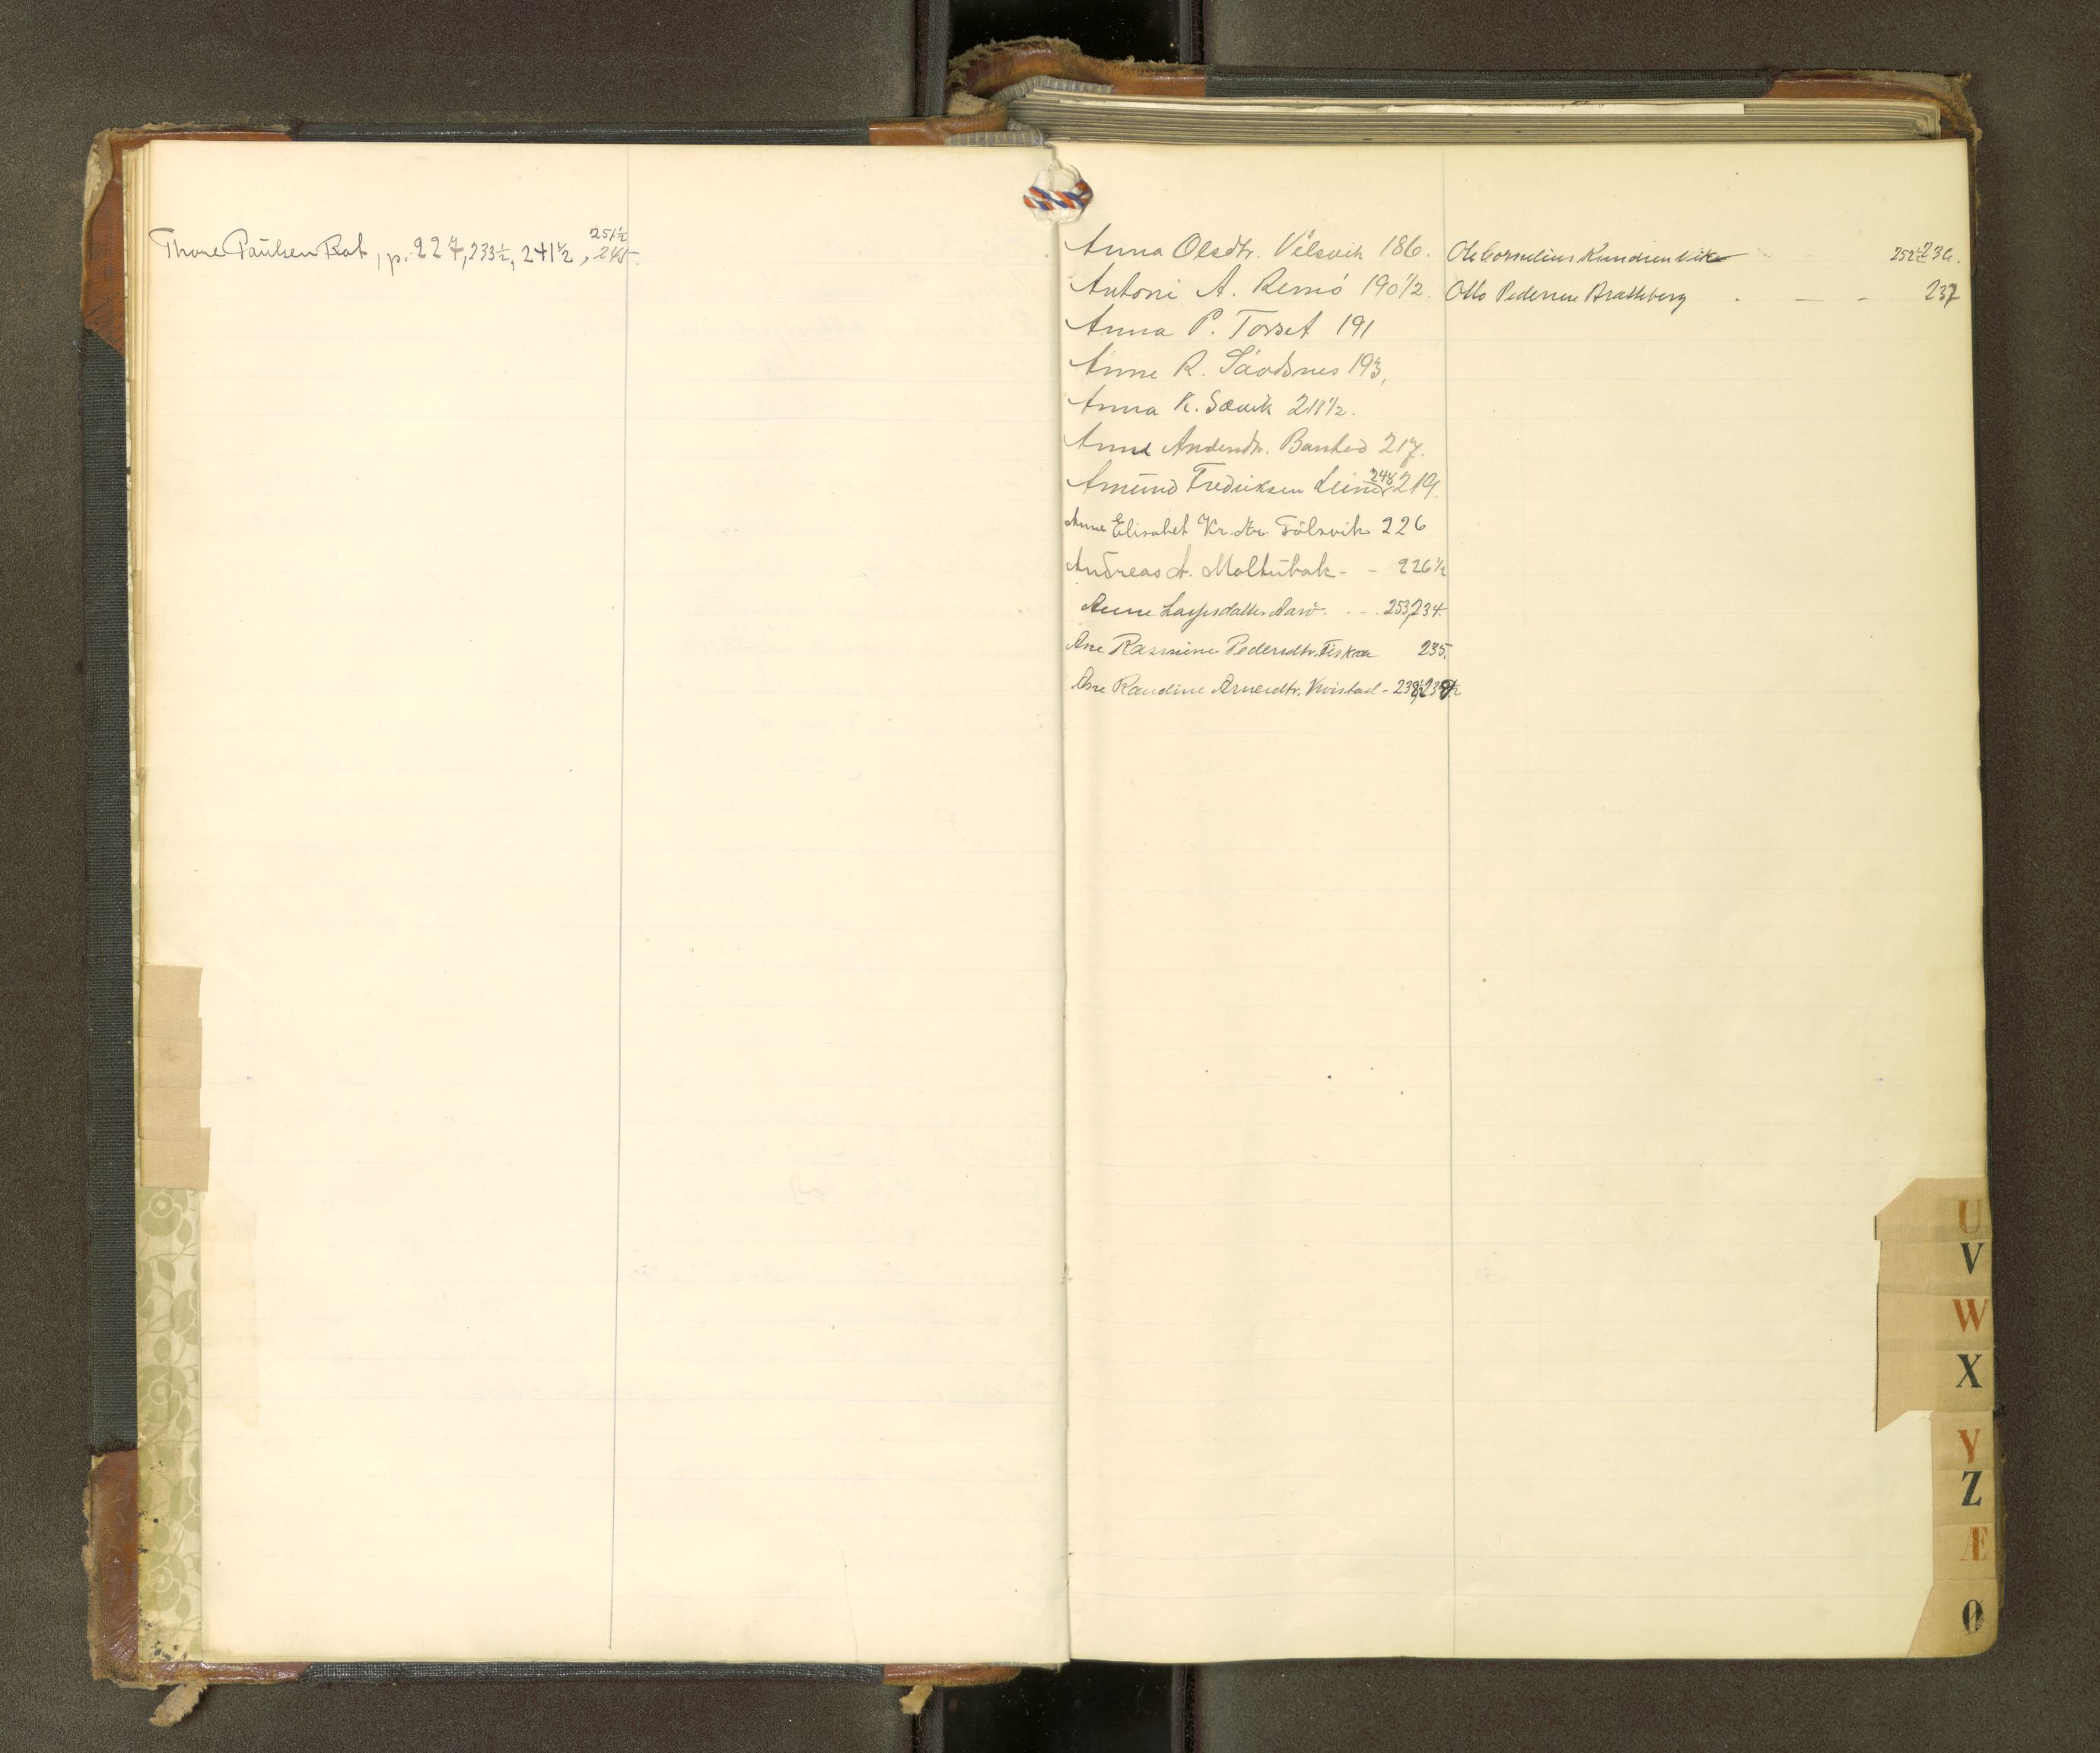 251½
Thore Paulsen Rat, p. 227, 233½, 241½, 245.
Anna Olsdtr. Vilsvik 186.
Antoni A. Remö 190½.
Anna P. Torset 191
Anne R. 193,
Anna K. Sævik 211½.
Anne Andersdtr. 217.
Amund Fredriksen Leine 248 219.
Anne Elisabet Kr.dtr. Tölsvik 226
Andreas A. Moltubak - - 226½
Anne 253, 234
Ane Rasmine Pedersdtr. Fiskaa 235.
Ane Raudine Arnesdtr. Kvistad - 238½
Ole Cornelius Knudsen Vike 252½ 236.
Otto Pedersen Brattberg . — - 237
U
V
W
X
Y
Z
Æ
Ø